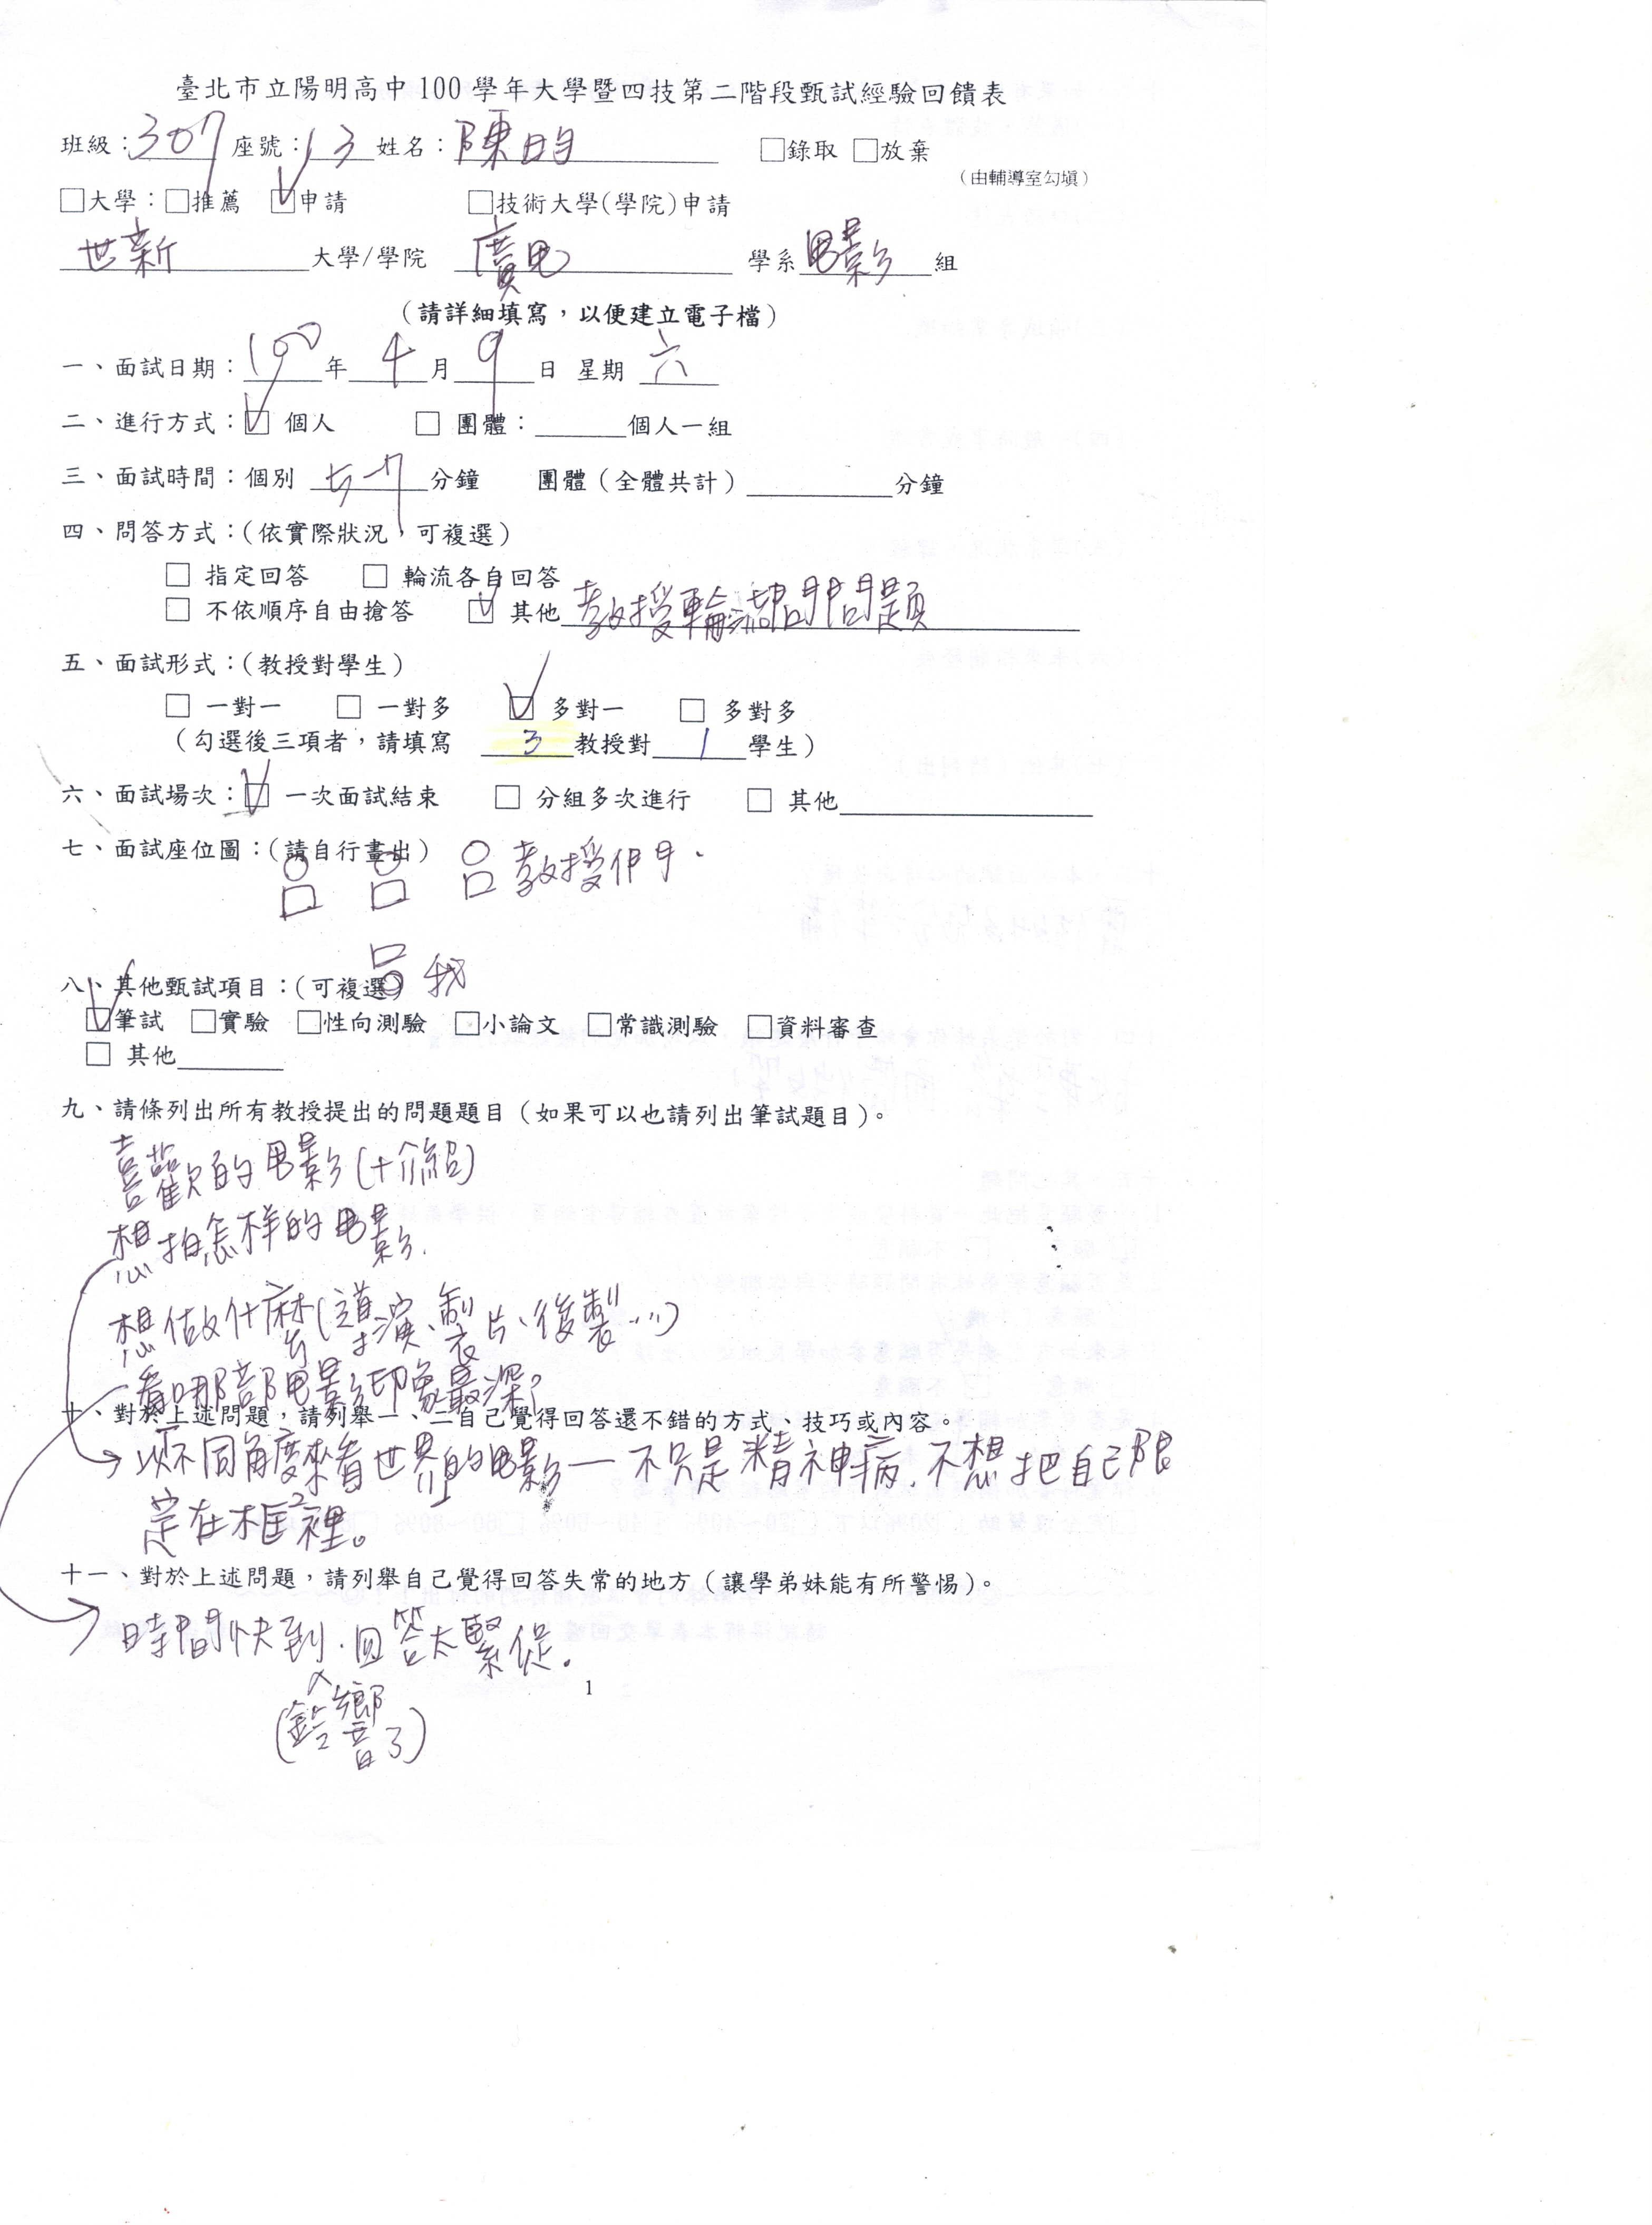 臺北市立陽明高中 100 學年大學暨四技第二階段甄試經驗回饋表
班級：307 座號：13 姓名：陳昀 □錄取 □放棄
（由輔導室勾填）
□大學：□推薦 ☑申請 □技術大學(學院)申請
世新 大學/學院 廣電 學系 電影 組
（請詳細填寫，以便建立電子檔）
一、面試日期：100 年 4 月 9 日 星期 六
二、進行方式：☑ 個人 □ 團體：______個人一組
三、面試時間：個別 5-7 分鐘 團體（全體共計）______分鐘
四、問答方式：(依實際狀況，可複選)
□ 指定回答 □ 輪流各自回答
□ 不依順序自由搶答 ☑ 其他 教授輪流提問問題
五、面試形式：(教授對學生)
□ 一對一 □ 一對多 ☑ 多對一 □ 多對多
（勾選後三項者，請填寫 3 教授對 1 學生）
六、面試場次：☑ 一次面試結束 □ 分組多次進行 □ 其他______
七、面試座位圖：(請自行畫出)
教授們
我
八、其他甄試項目：(可複選)
☑筆試 □實驗 □性向測驗 □小論文 □常識測驗 □資料審查
□ 其他______
九、請條列出所有教授提出的問題題目（如果可以也請列出筆試題目）。
喜歡的電影(+介紹)
想拍怎樣的電影.
想做什麼(導演、製片、後製...)
看哪部電影印象最深?
十、對於上述問題，請列舉一、二自己覺得回答還不錯的方式、技巧或內容。
以不同角度來看世界的電影— 不只是精神病.不想把自己限
定在框裡。
十一、對於上述問題，請列舉自己覺得回答失常的地方（讓學弟妹能有所警惕）。
時間快到.回答太緊促.
(鈴響了)
1